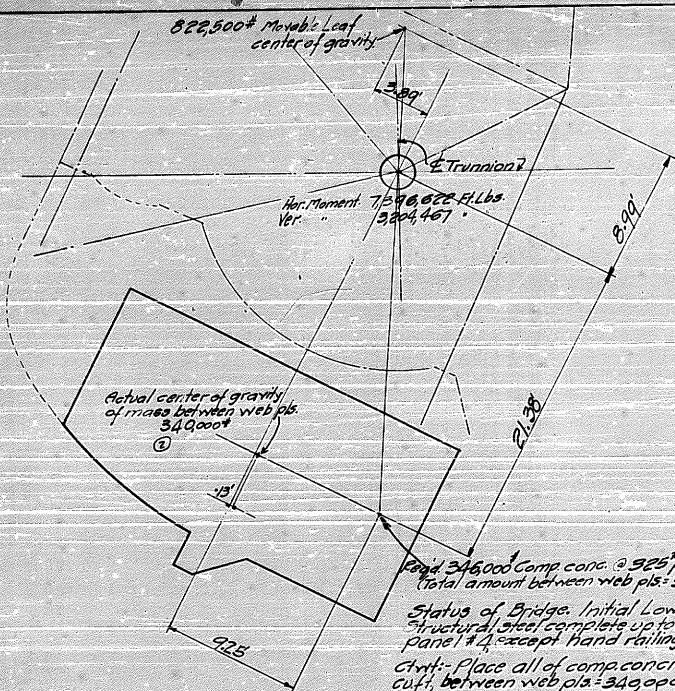 822,500# Movable Leaf
center of gravity
3.89'
℄ Trunnion
Hor. Moment 7,396,622 Ft. Lbs.
Ver. " 3,204,467 "
8.99'
21.38'
Actual center of gravity
of mass between web pls.
340,000#
②
.13'
9.25'
Req'd 346,000# Comp. conc. @ 325#
(Total amount between web pls =
Status of Bridge. Initial Low
Structural steel complete up to
panel #4, except hand railing
Ctwt:- Place all of comp. concr
cu.ft. between web pls. = 340,000